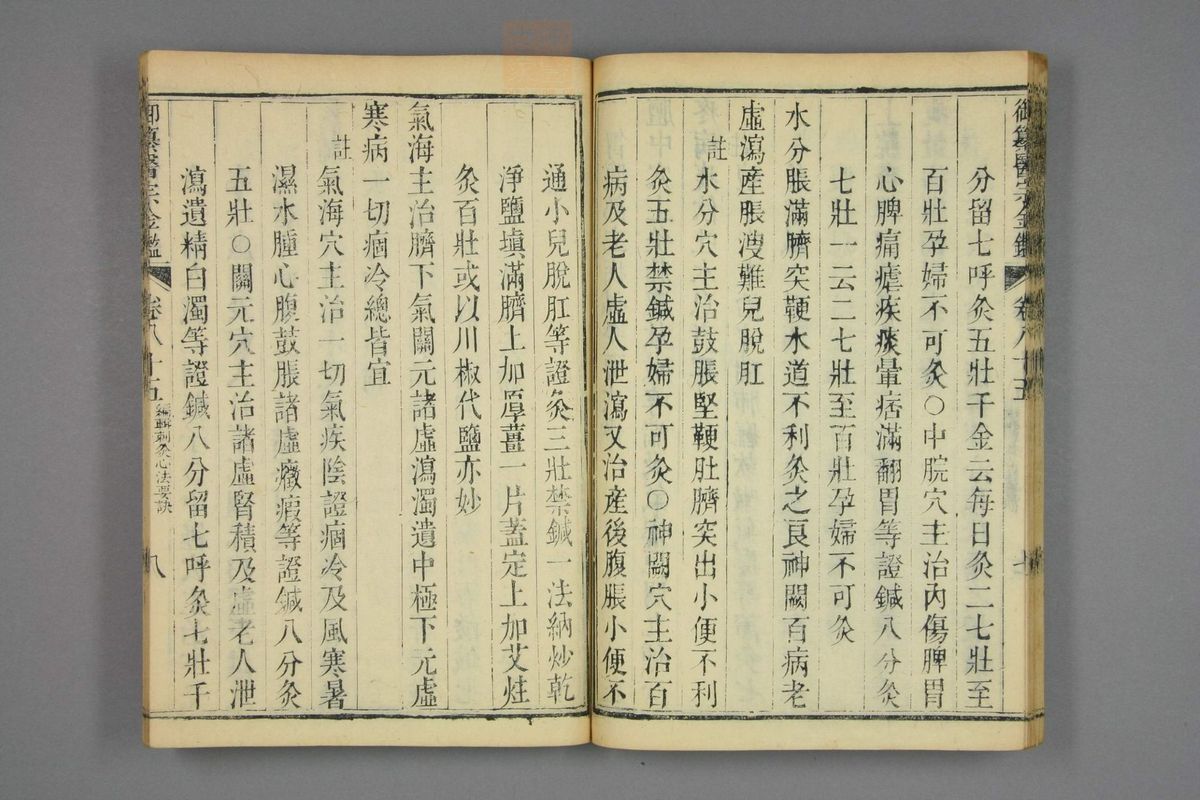 御纂醫宗金鑑 卷八十五 七
分留七呼灸五壯千金云每日灸二七壯至
百壯孕婦不可灸○中脘穴主治內傷脾胃
心脾痛瘧疾痰暈痞滿翻胃等證鍼八分灸
七壯一云二七壯至百壯孕婦不可灸
水分脹滿臍突鞕水道不利灸之良神闕百病老
虛瀉產脹溲難兒脫肛
註水分穴主治鼓脹堅鞕肚臍突出小便不利
灸五壯禁鍼孕婦不可灸○神闕穴主治百
病及老人虛人泄瀉又治產後腹脹小便不
通小兒脫肛等證灸三壯禁鍼一法納炒乾
淨鹽填滿臍上加厚薑一片蓋定上加艾炷
灸百壯或以川椒代鹽亦妙
氣海主治臍下氣關元諸虛瀉濁遺中極下元虛
寒病一切痼冷總皆宜
註氣海穴主治一切氣疾陰證痼冷及風寒暑
濕水腫心腹鼓脹諸虛癥瘕等證鍼八分灸
五壯○關元穴主治諸虛腎積及虛老人泄
瀉遺精白濁等證鍼八分留七呼灸七壯千
御纂醫宗金鑑 卷八十五 編輯刺灸心法要訣 八